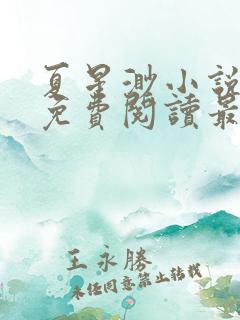 夏星渺小説
免費閱讀最
王永勝
未經同意禁止轉載